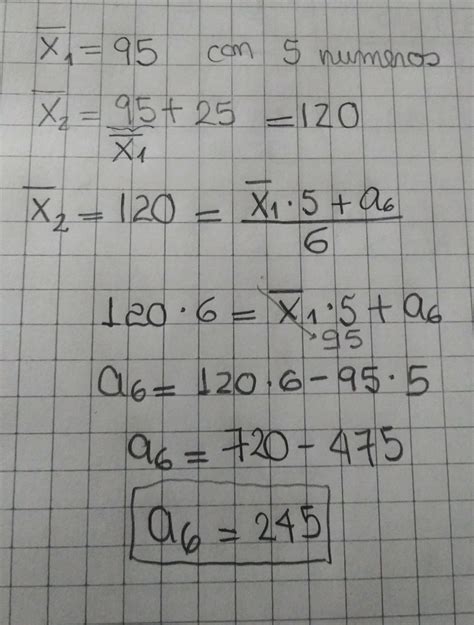 x̄₁ = 95 con 5 numeros
x̄₂ = 95 + 25 = 120
x̄₁
x̄₂ = 120 = (x̄₁·5 + a₆)/6
120·6 = x̄₁·5 + a₆
95
a₆ = 120·6 - 95·5
a₆ = 720 - 475
a₆ = 245